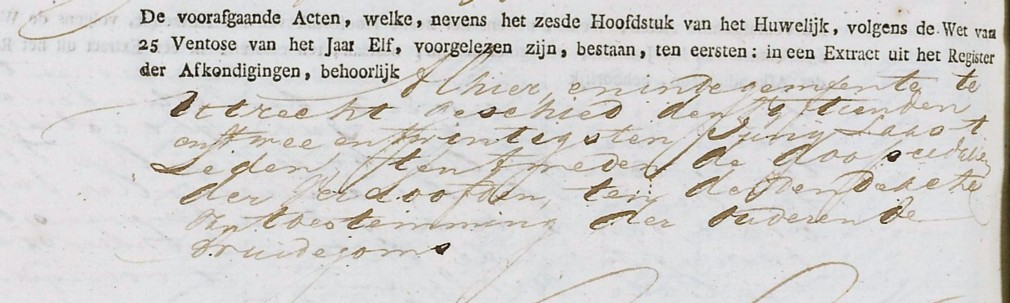 De voorafgaande Acten, welke, nevens het zesde Hoofdstuk van het Huwelijk, volgens de Wet van
25 Ventose van het Jaar Elf, voorgelezen zijn, bestaan, ten eersten: in een Extract uit het Register
der Afkondigingen, behoorlijk
Alhier, en in de gemeente te
Utrecht Geschied den vijftienden
en twee en twintigsten Juny Laast
Leden, ten tweeden de doopcedulen
der verloofden, ten derden de acte
van toestemming der ouderen de
Bruidegoms